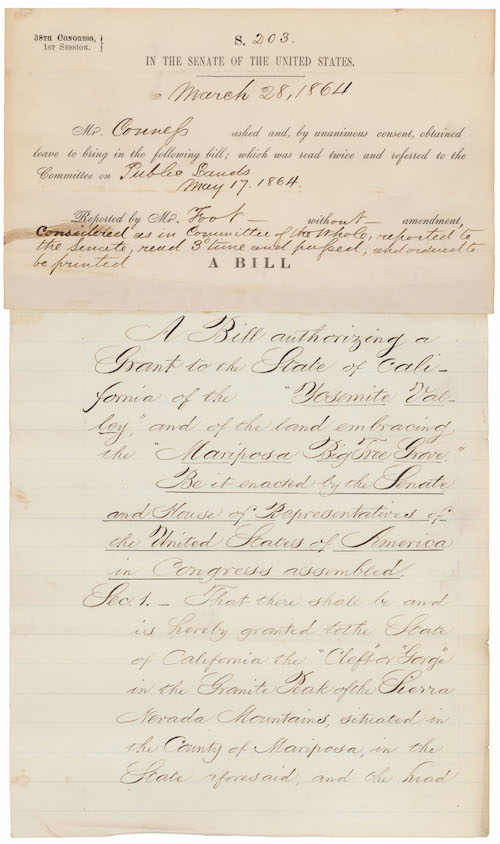 38TH CONGRESS,
1ST SESSION.
S. 203.
IN THE SENATE OF THE UNITED STATES.
March 28, 1864
Mr. Conness asked and, by unanimous consent, obtained
leave to bring in the following bill; which was read twice and referred to the
Committee on Public Lands
May 17. 1864.
Reported by Mr. Foot — without — amendment,
Considered as in Committee of the Whole, reported to
the Senate, read 3d time and passed, and ordered to
be printed
A BILL
A Bill authorizing a
Grant to the State of Cali-
fornia of the "Yosemite Val-
ley," and of the land embracing
the "Mariposa Big Tree Grove."
Be it enacted by the Senate
and House of Representatives of
the United States of America
in Congress assembled.
Sec. 1. — That there shall be and
is hereby granted to the State
of California the "Cleft" or "Gorge"
in the Granite Peak of the Sierra
Nevada Mountains, situated in
the County of Mariposa, in the
State aforesaid, and the head